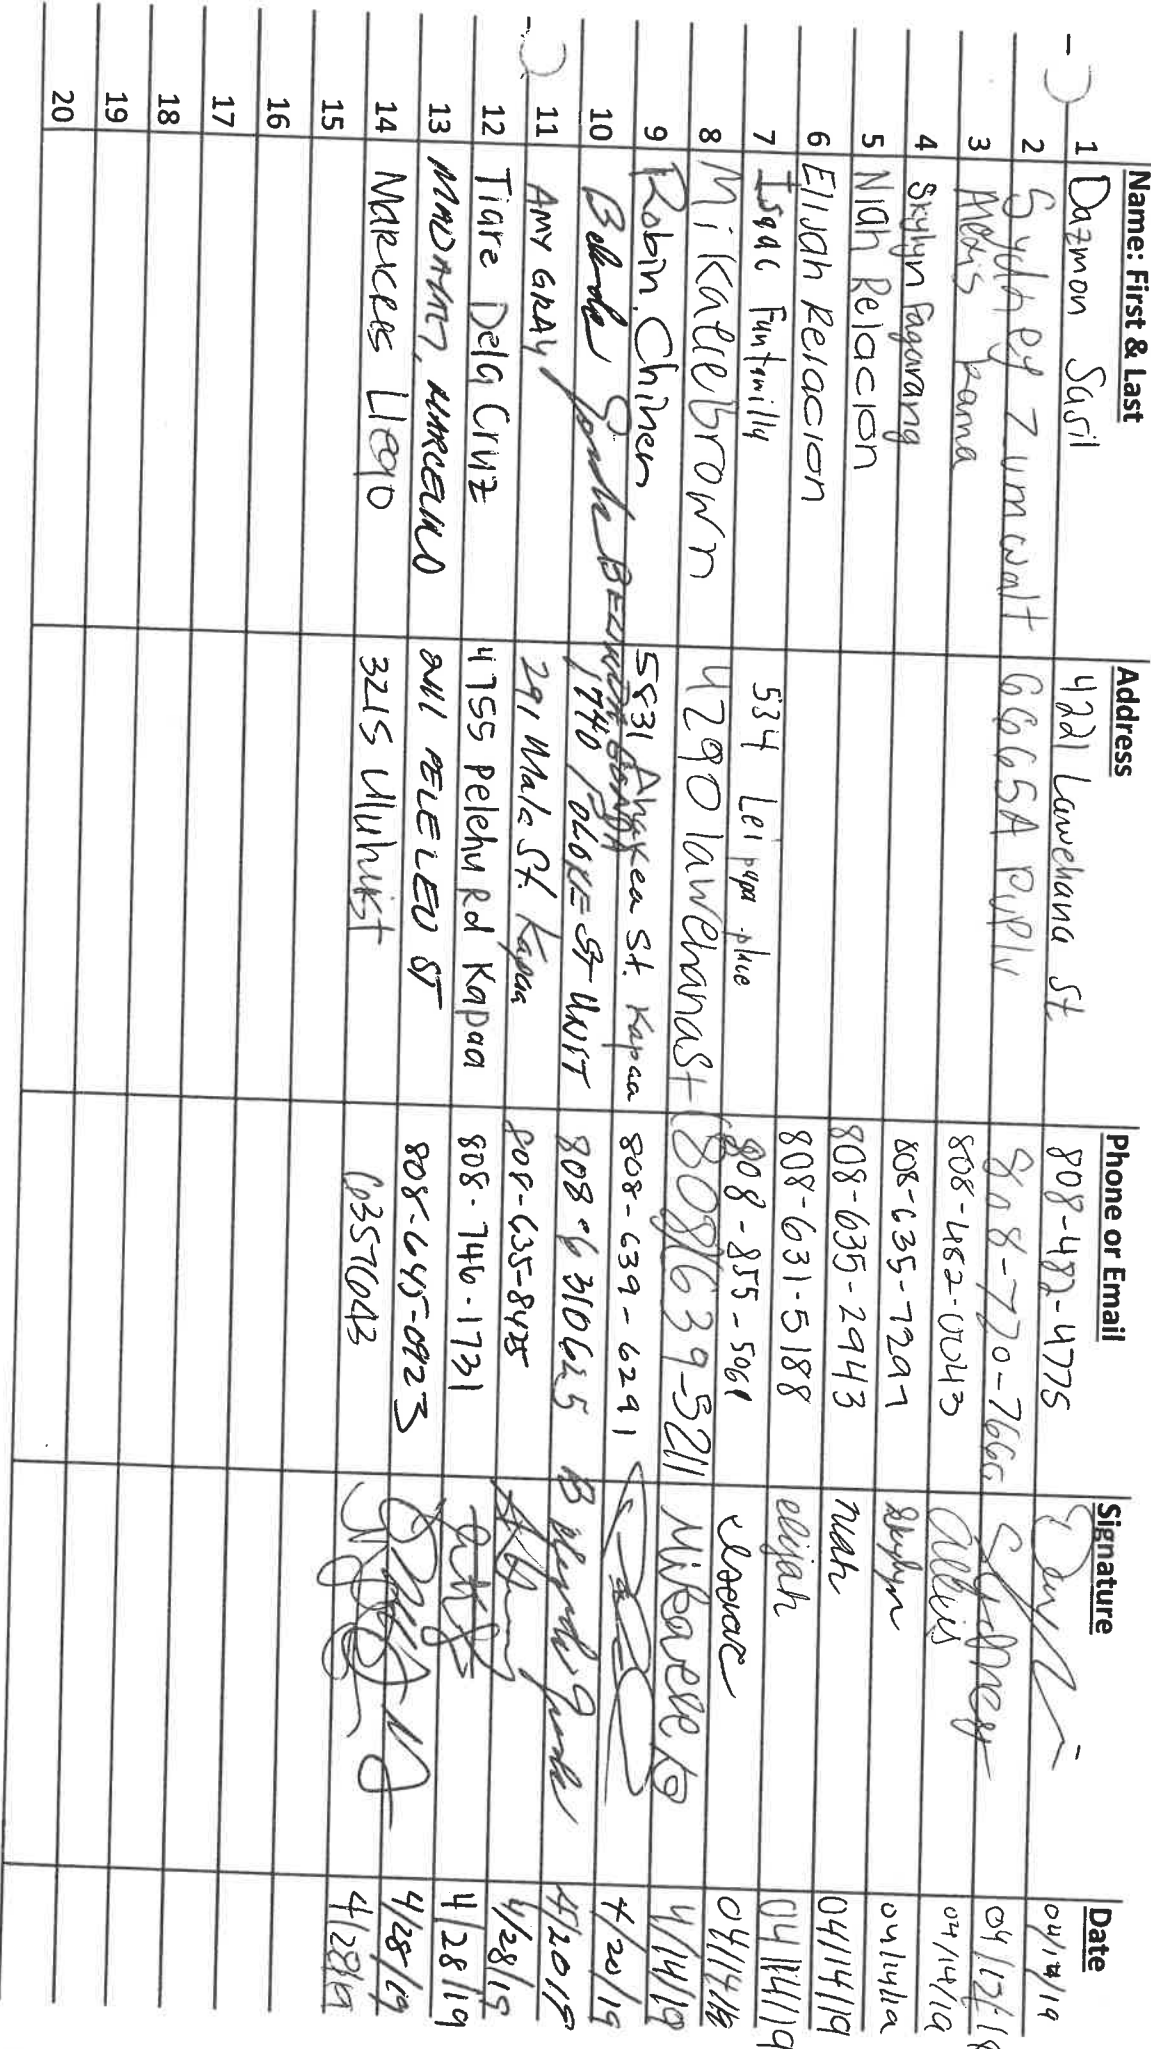 Name: First & Last Address Phone or Email Signature Date
1 Dazmon Sasil 4221 Lawehana St. 808-482-4775 04/14/19
2 Sydney Zumwalt 6665A Sydney
3 Alexis Rama 808-482-0043 alexis 04/14/19
4 Skylyn Fagarang 808-635-7297 Skylyn 04/14/19
5 Niah Relacion 808-635-2943 niah 04/14/19
6 Elijah Relacion 808-631-5188 elijah 04/14/19
7 Isaac Funtanilla 534 Lei pupa place 808-855-5061 isaac 04/14/19
8 Mikaele brown 4290 lawehana St (808)639-5211 Mikaele 4/14/19
9 Robin Chinen 5831 Ahakea St. Kapaa 808-639-6291 4/20/19
10 Belinda 1740 UNIT
11 AMY GRAY 291 Mala St. Kapaa 808-635-8425 4/28/19
12 Tiare Dela Cruz 4755 Pelehu Rd Kapaa 808-746-1731 4/28/19
13 MADAMT, MARCELINO PELELEU ST 808-645-0923 4/28/19
14 Marices Llego 3215 6357643 4/28/19
15
16
17
18
19
20